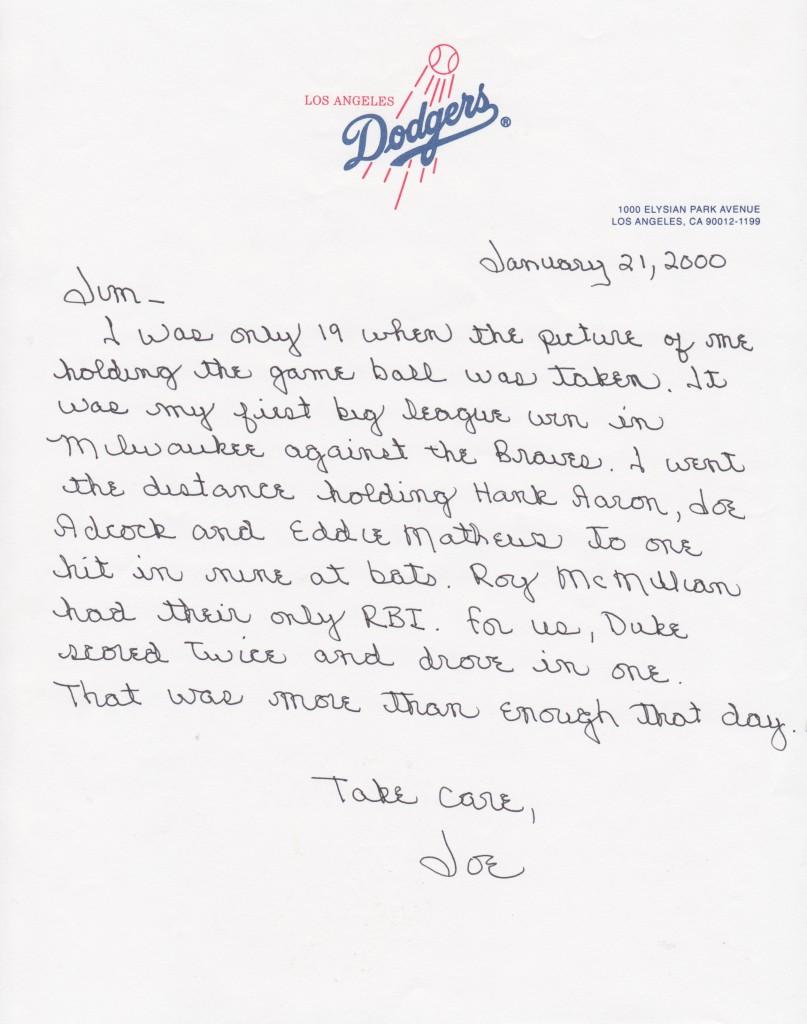 LOS ANGELES
Dodgers®
1000 ELYSIAN PARK AVENUE
LOS ANGELES, CA 90012-1199
January 21, 2000
Jim –
I was only 19 when the picture of me
holding the game ball was taken. It
was my first big league win in
Milwaukee against the Braves. I went
the distance holding Hank Aaron, Joe
Adcock and Eddie Mathews to one
hit in nine at bats. Roy McMillian
had their only RBI. For us, Duke
scored twice and drove in one.
That was more than enough that day.
Take care,
Joe